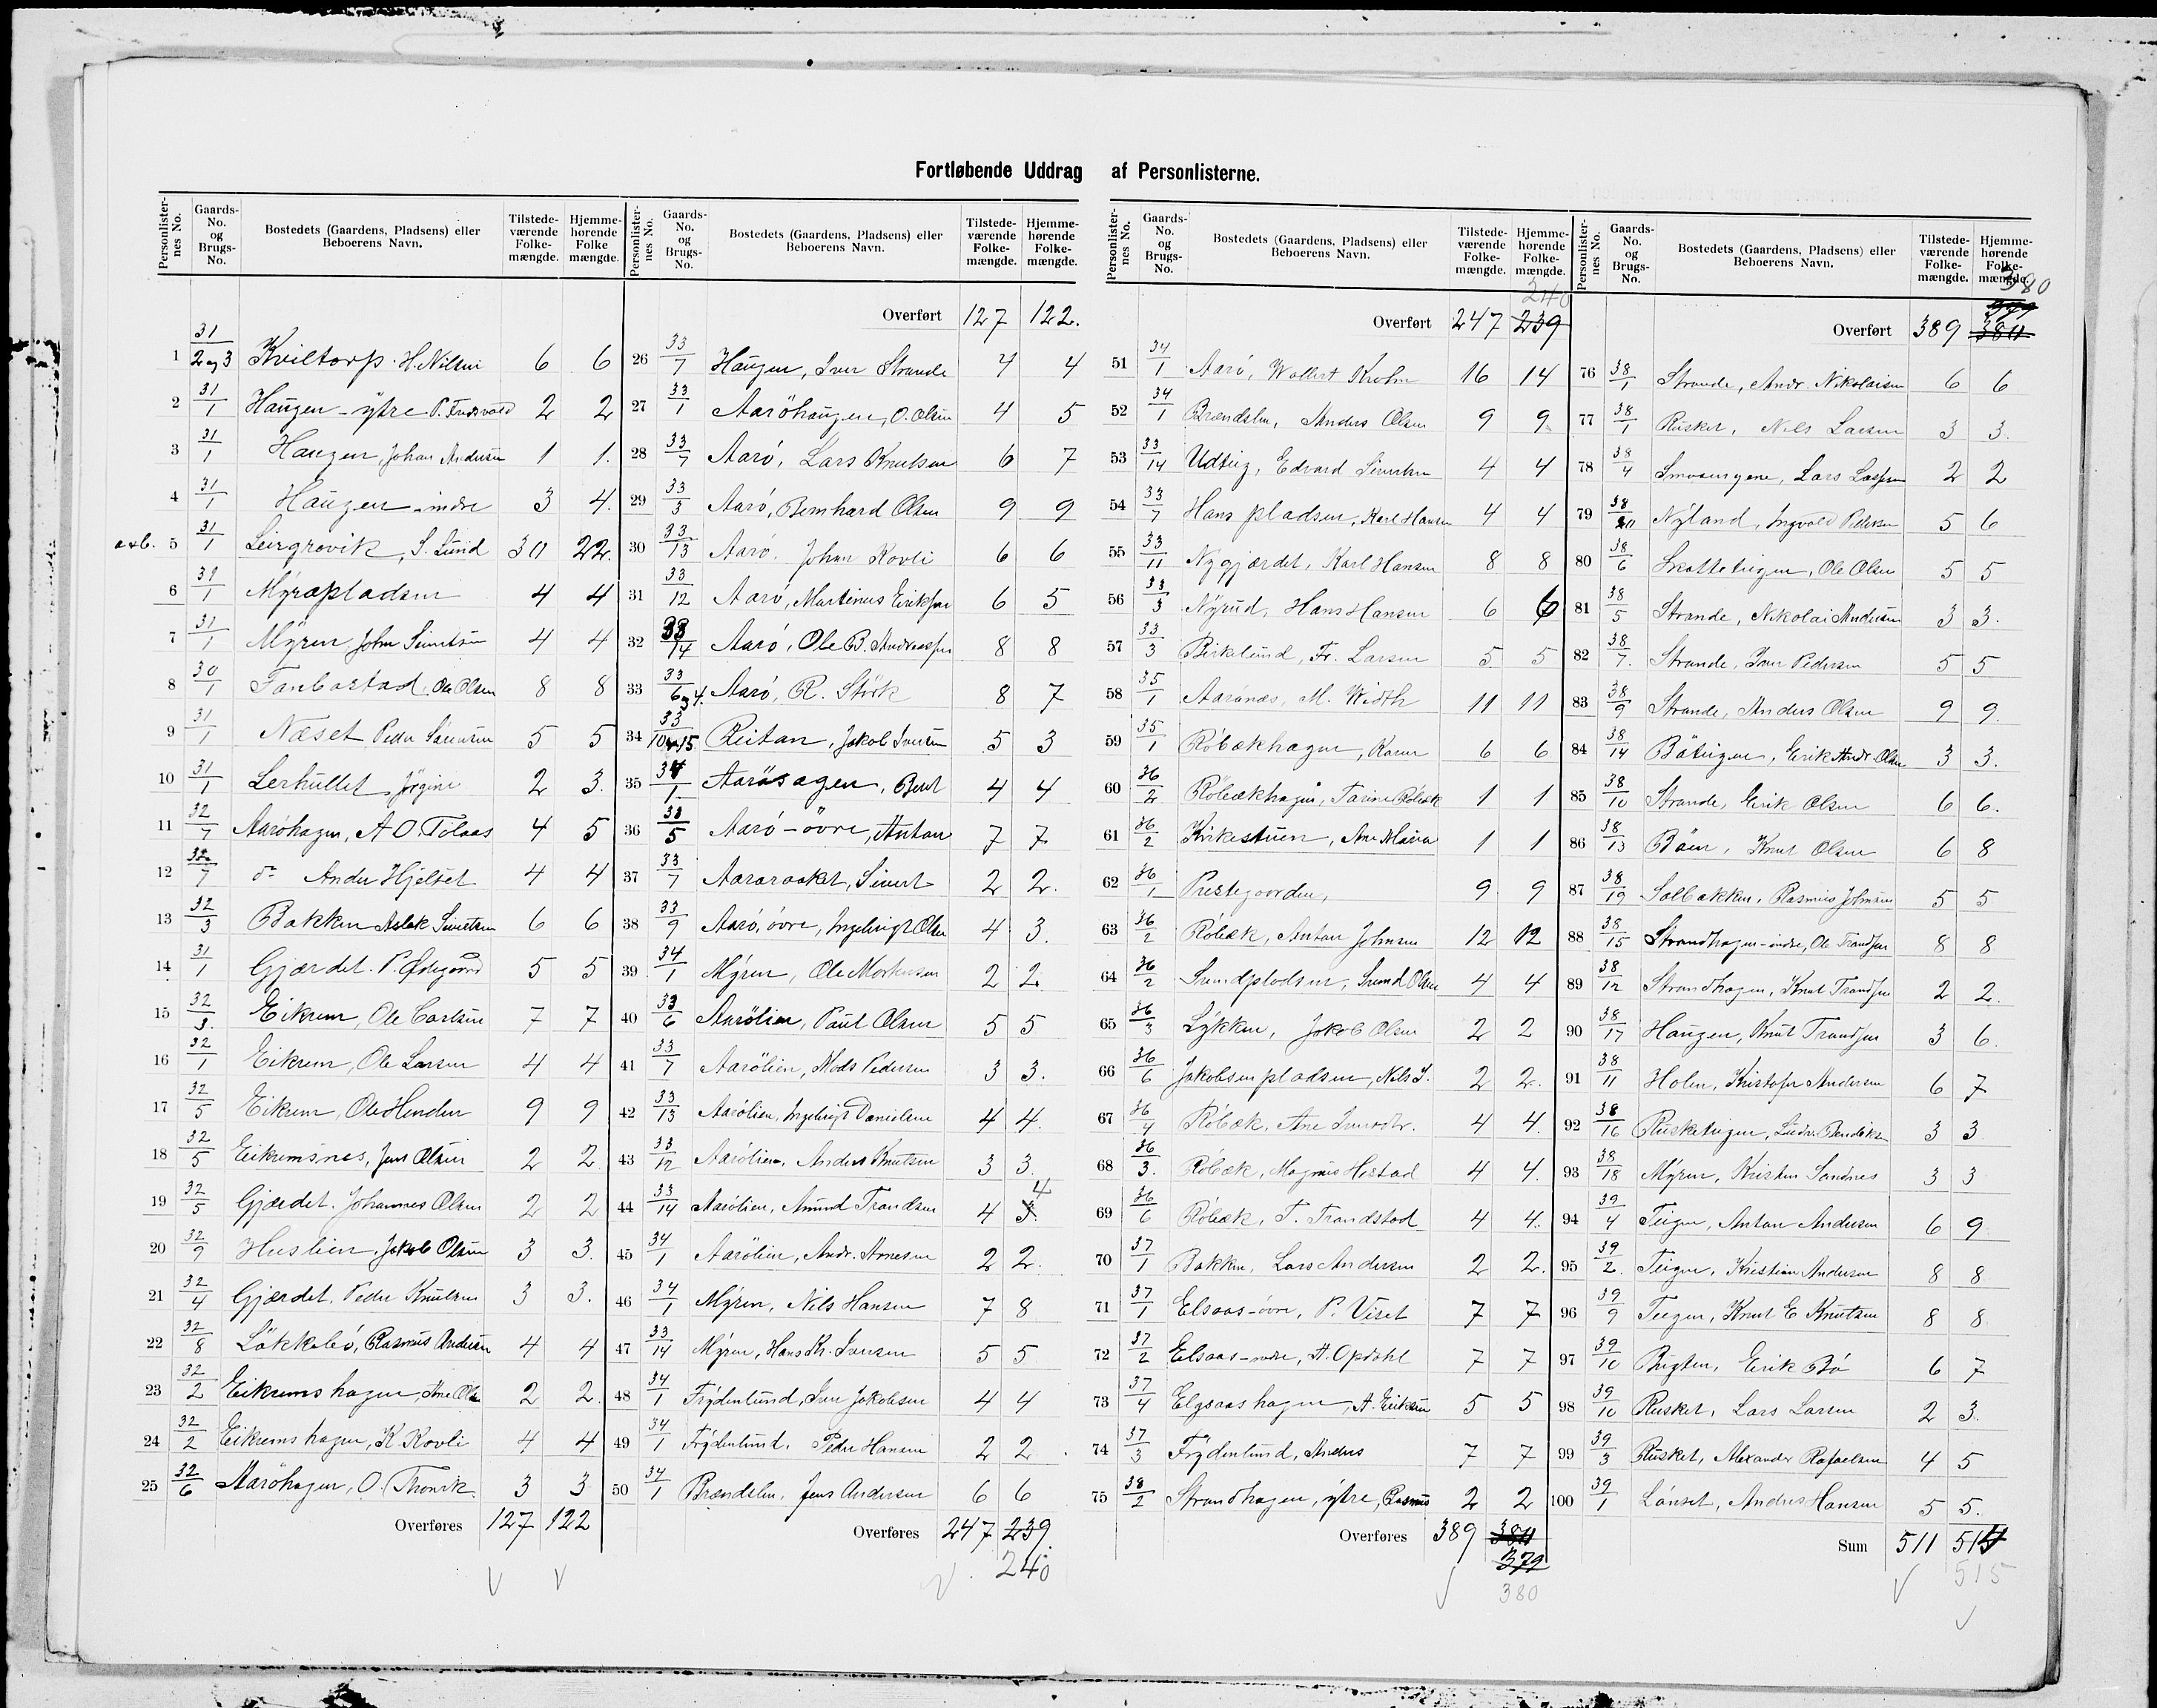 Fortløbende Uddrag af Personlisterne.
Personlister-nes No. Gaards-No. og Brugs-No. Bostedets (Gaardens, Pladsens) eller Beboerens Navn. Tilstede-værende Folke-mængde. Hjemme-hørende Folke mængde.
1 31/2 og 3 Kviltorp. H. Nilsen 6 6
2 31/1 Haugen - ytre P. Fredsvold 2 2
3 31/1 Haugen, Johan Andersen 1 1.
4 31/1 Haugen - indre 3 4.
a+b. 5 31/1 Leirgrovik, S. Lund 30 22.
6 31/1 Myrapladsen 4 4
7 31/1 Myren, John Sivertsen 4 4
8 30/1 Fanbostad, Ole Olsen 8 8
9 31/1 Næset Peder Sörensen 5 5
10 31/1 Lerhullet, Jörgine 2 3.
11 32/7 Aaröhagen, A O. Tolaas 4 5
12 32/7 do Anders Hjeltet 4 4
13 32/3 Bakken Aslak Sivertsen 6 6
14 31/1 Gjærdet. P. Ødegaard 5 5
15 32/3. Eikrem, Ole Carlsen 7 7
16 32/1 Eikrem, Ole Larsen 4 4
17 32/5 Eikrem, Ole Henden 9 9
18 32/5 Eikremsnes, Jens Olsen 2 2
19 32/5 Gjærdet. Johannes Olsen 2 2
20 32/9 Huslien, Jakob Olsen 3 3.
21 32/4 Gjærdet, Peder Knutsen 3 3.
22 32/8 Lökkebö, Rasmus Andersen 4 4
23 32/2 Eikremshagen, Ane Ols 2 2.
24 32/2 Eikremshagen, K Rovli 4 4
25 32/6 Aaröhagen, O. Thorvik. 3 3
Overføres 127 122
Personlister-nes No. Gaards-No. og Brugs-No. Bostedets (Gaardens, Pladsens) eller Beboerens Navn. Tilstede-værende Folke-mængde. Hjemme-hørende Folke-mængde.
Overført 127 122.
26 33/7 Haugen, Iver Strande 4 4
27 33/1 Aaröhaugen, O. Olsen 4 5
28 33/7 Aarö, Lars Knutsen 6 7
29 33/3 Aarö, Bernhard Olsen 9 9
30 33/13 Aarö. Johan Rovli 6 6
31 33/12 Aarö, Martinus Eriksen 6 5
32 33/14 Aarö, Ole B. Andreassen 8 8
33 33/6 og 4. Aarö, R. Störk 8 7
34 33/10 og 15 Reitan, Jakob Iversen 5 3
35 34/1 Aarösagen, Bent 4 4
36 33/5 Aarö - övre, Anton 7 7
37 33/7 Aararaaket, Sivert 2 2.
38 33/9 Aarö, övre, Ingebrigt Olsen 4 3.
39 34/1 Myren, Ole Mortensen 2 2
40 33/6 Aarölien, Paul Olsen 5 5
41 33/7 Aarölien, Mads Pedersen 3 3.
42 33/13 Aarölien, Ingebrigt Danielsen 4 4.
43 33/12 Aarölien, Anders Knutsen 3 3.
44 33/14 Aarölien, Amund Trandsen 4 3. 4
45 34/1 Aarölien, Andr. Arnesen 2 2.
46 34/1 Myren, Nils Hansen 7 8
47 33/14 Myren, Hans Kr. Iversen 5 5
48 34/1 Frydenlund, Iver Jakobsen 4 4
49 34/1 Frydenlund, Peder Hansen 2 2
50 34/1 Brændslen, Jens Andersen 6 6
Overføres 247 239.
240
Personlister-nes No. Gaards-No. og Brugs-No. Bostedets (Gaardens, Pladsens) eller Beboerens Navn. Tilstede-værende Folke-mængde. Hjemme-hørende Folke-mængde.
240
Overført 247 239
51 34/1 Aarö, Wollert Krohn 16 14
52 34/1 Brændslen, Anders Olsen 9 9
53 33/14 Udstig, Edvard Sivertsen 4 4
54 33/7 Hans pladsen, Karl Hansen 4 4
55 33/11 Nygjærdet, Karl Hansen 8 8
56 33/3 Nyrud, Hans Hansen 6 6
57 33/3 Birkelund, Fr. Larsen 5 5
58 35/1 Aarönæs, M. Width 11 11
59 35/1 Röbækhagen, Karen 6 6
60 36/2 Röbækhagen, Tarine Röbæk 1 1
61 36/2 Kirkestuen, Ane Maria 1 1
62 36/1 Prestegaarden, 9 9
63 36/2 Röbæk, Anton Johnsen 12 12
64 36/2 Svendpladsen, Svend Olsen 4 4
65 36/3 Lykken, Jakob Olsen 2 2
66 36/6 Jakobsenpladsen, Nils J. 2 2.
67 36/4 Röbæk, Ane Iversdtr. 4 4.
68 36/3. Röbæk, Magnus Hestad 4 4.
69 36/6 Röbæk, T. Trandstad 4 4.
70 37/1 Bakken, Lars Andersen 2 2.
71 37/1 Elsaas - övre, P. Viset 7 7
72 37/2 Elsaas - nedre, A. Opdahl 7 7
73 37/4 Elgsaashagen, A. Eriksen 5 5
74 37/3 Frydenlund, Anders 7 7
75 38/2 Strandhagen, ytre, Rasmus 2 2
Overføres 389 380
379
380
Personlister-nes No. Gaards-No. og Brugs-No. Bostedets (Gaardens, Pladsens) eller Beboerens Navn. Tilstede-værende Folke-mængde. Hjemme-hørende Folke-mængde.
380
379
Overført 389 380
76 38/1 Strande, Andr. Nikolaisen 6 6
77 38/1 Rusket, Nels Larsen 3 3.
78 38/4 Lars Lassen 2 2
79 38/20 Nyland, Ingvald Pedersen 5 6
80 38/6 Skatteteigen, Ole Olsen 5 5
81 38/5 Strande, Nikolai Andersen 3 3.
82 38/7. Strande, Iver Pedersen 5 5
83 38/9 Strande, Anders Olsen 9 9.
84 38/14 Böteigen, Erik Andr. Olsen 3 3.
85 38/10 Strande, Erik Olsen 6 6.
86 38/13 Böen, Knut Olsen 6 8
87 38/19 Solbakken, Rasmus Johnsen 5 5
88 38/15 Strandhagen - indre, Ole Trandsen 8 8
89 38/12 Strandhagen, Knut Trandsen 2 2.
90 38/17 Haugen, Knut Trandsen 3 6.
91 38/11 Holen, Kristofer Andersen 6 7
92 38/16 Rusketeigen, Ludv. Bendiksen 3 3
93 38/18 Myren, Kristen Sandnes 3 3
94 39/4 Teigen, Anton Andersen 6 9.
95 39/2. Teigen, Kristian Andersen 8 8
96 39/9 Teigen, Knut E Knutsen 8 8
97 39/10 Bugten, Erik Bö 6 7
98 39/10 Rusket, Lars Larsen 2 3.
99 39/3 Rusket, Alexander Rafaelsen 4 5
100 39/1 Lönset, Andreas Hansen 5 5.
Sum 511 514
515